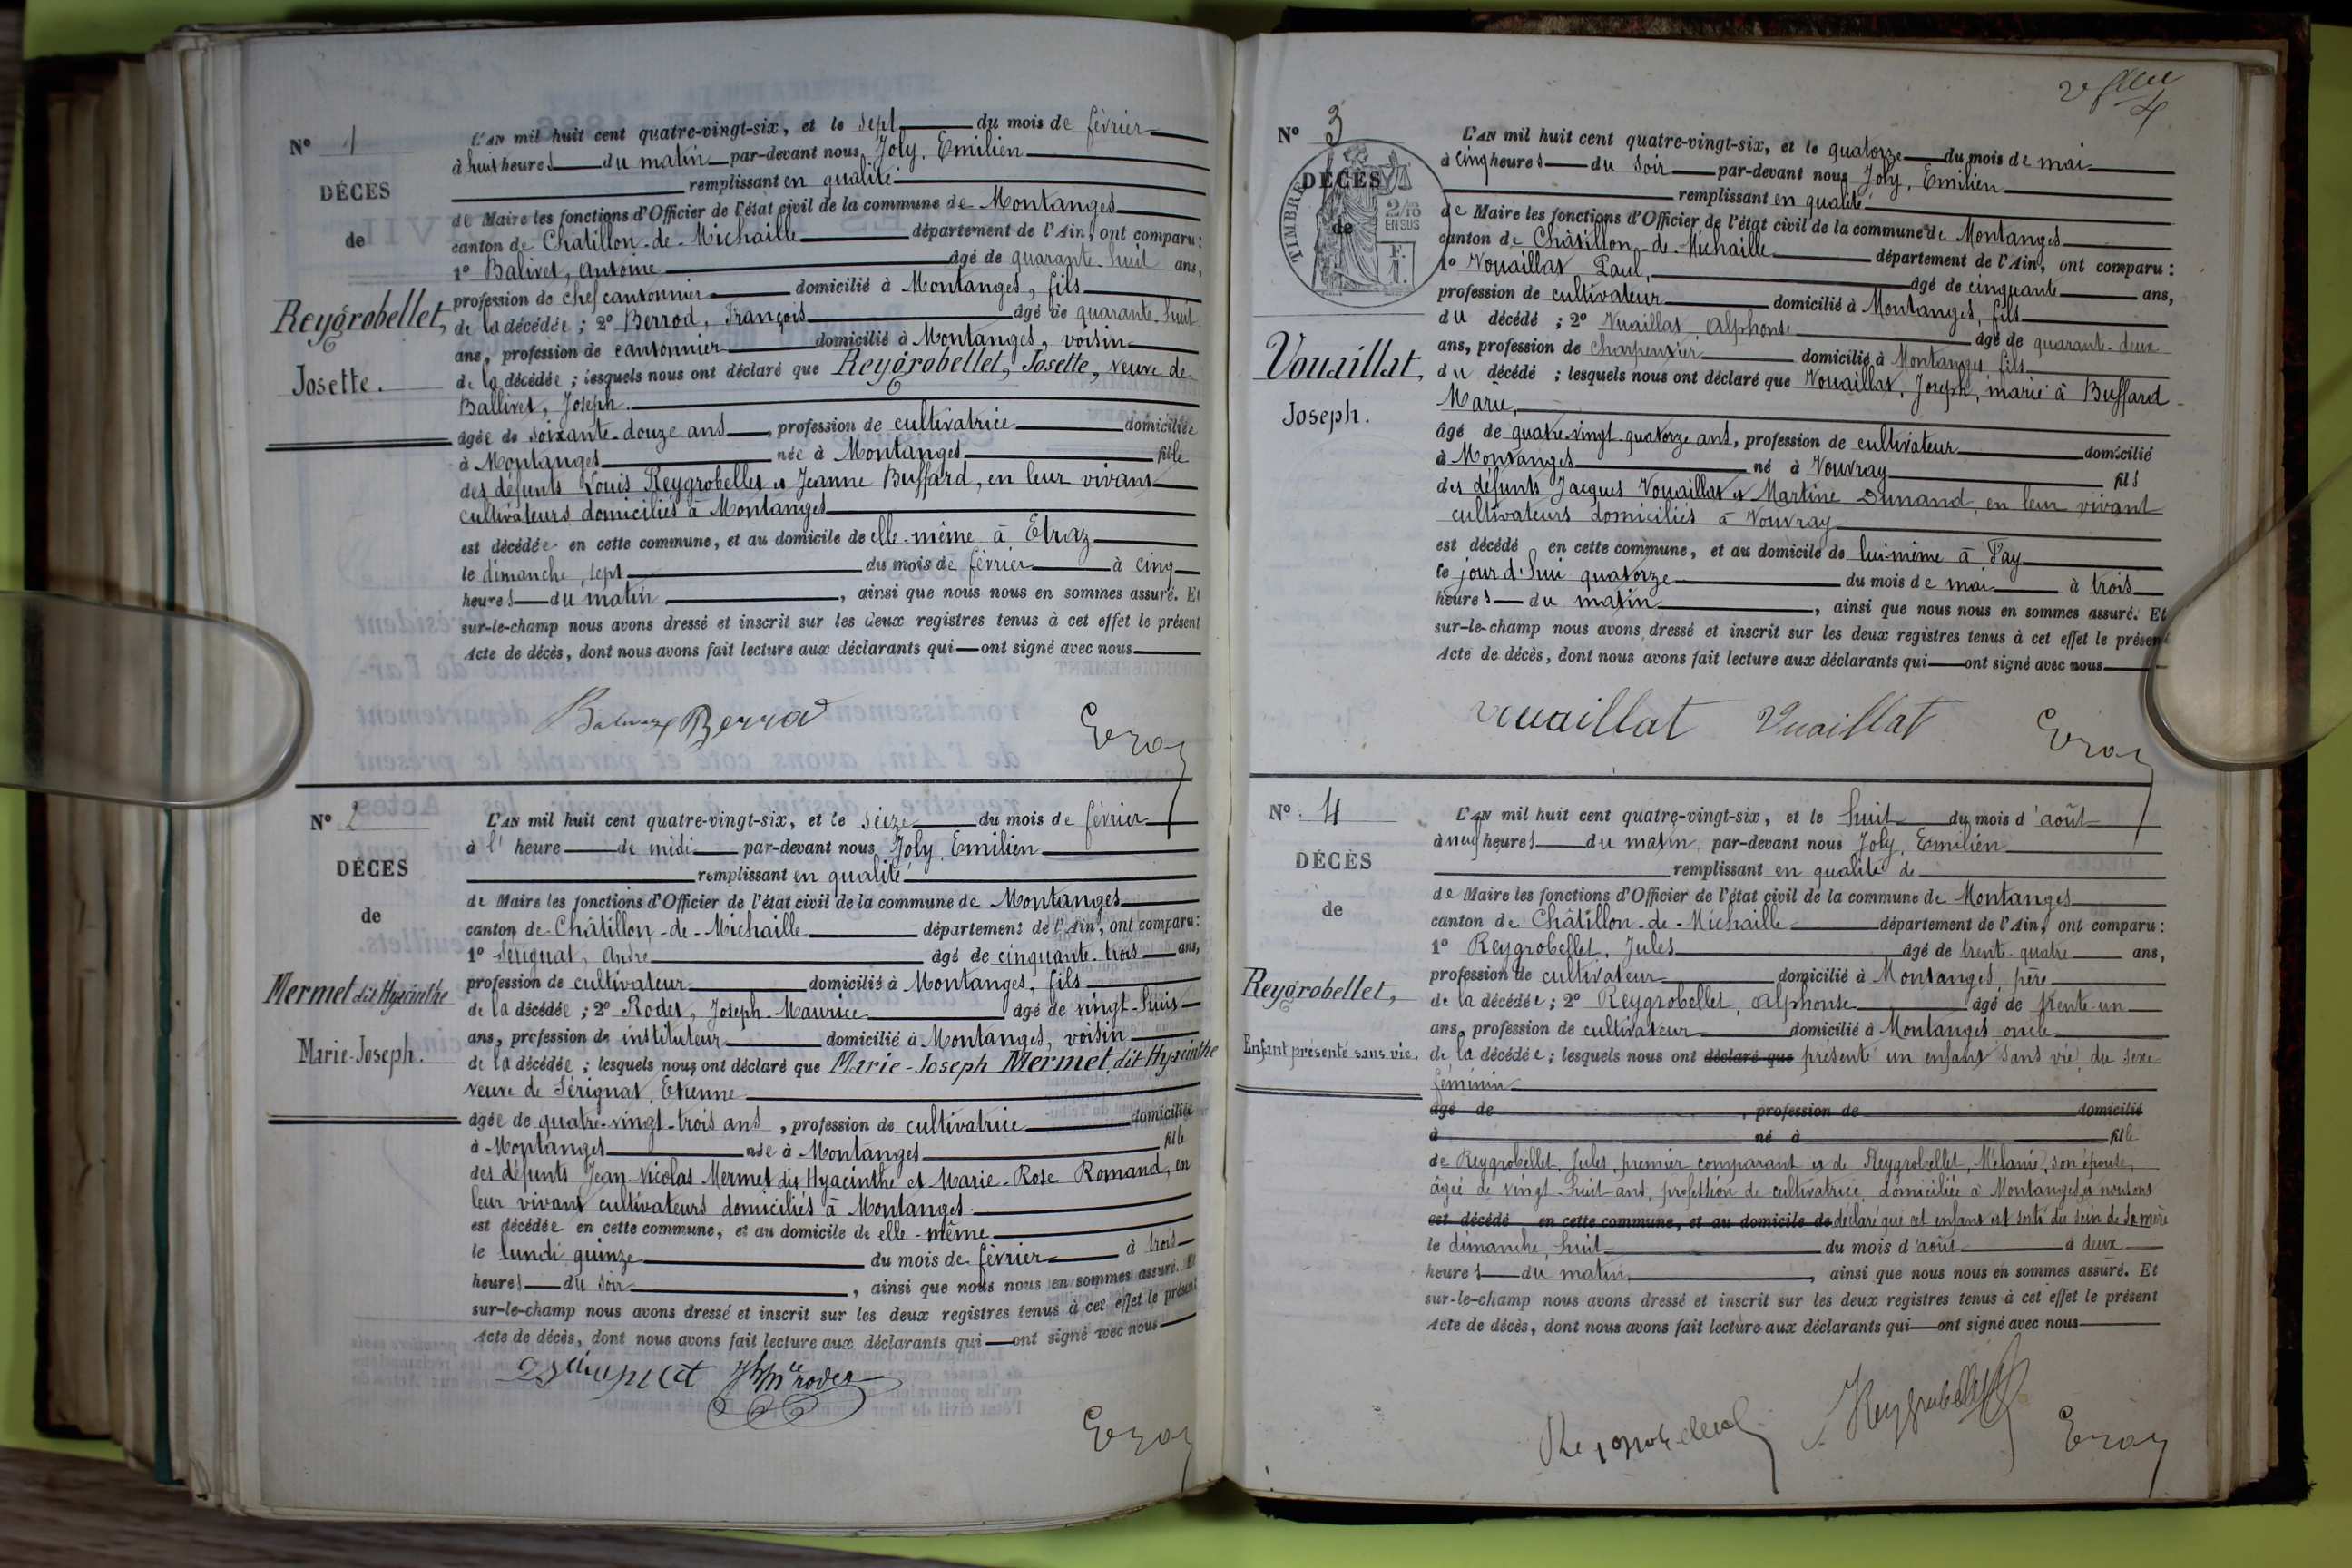 N° 1
DÉCÈS
de
Reygrobellet,
Josette.
L'AN mil huit cent quatre-vingt-six, et le sept du mois de février
à huit heures du matin par-devant nous Joly, Emilien
remplissant en qualité
de Maire les fonctions d'Officier de l'état civil de la commune de Montanges
canton de Chatillon-de-Michaille département de l'Ain, ont comparu:
1° Balivet, Antoine âgé de quarante-huit ans,
profession de chef cantonnier domicilié à Montanges, fils
de la décédée; 2° Berrod, François âgé de quarante-huit
ans, profession de cantonnier domicilié à Montanges, voisin
de la décédée; lesquels nous ont déclaré que Reygrobellet, Josette, veuve de
Ballivet, Joseph.
âgée de soixante-douze ans, profession de cultivatrice domiciliée
à Montanges née à Montanges fille
des défunts Louis Reygrobellet et Jeanne Buffard, en leur vivant
cultivateurs domiciliés à Montanges
est décédée en cette commune, et au domicile de elle-même à Etraz
le dimanche, sept du mois de février à cinq
heures du matin, ainsi que nous nous en sommes assuré. Et
sur-le-champ nous avons dressé et inscrit sur les deux registres tenus à cet effet le présent
Acte de décès, dont nous avons fait lecture aux déclarants qui ont signé avec nous
Berrod
N° 2
DÉCES
de
Mermet dit Hyacinthe
Marie-Joseph.
L'AN mil huit cent quatre-vingt-six, et le seize du mois de février
à l' heure de midi par-devant nous Joly, Emilien
remplissant en qualité
de Maire les fonctions d'Officier de l'état civil de la commune de Montanges
canton de Châtillon-de-Michaille département de l'Ain, ont comparu:
1° Sérignat, André âgé de cinquante-trois ans,
profession de cultivateur domicilié à Montanges, fils
de la décédée; 2° Rodet, Joseph-Maurice âgé de vingt-huit
ans, profession de instituteur domicilié à Montanges, voisin
de la décédée; lesquels nous ont déclaré que Marie-Joseph Mermet dit Hyacinthe
veuve de Sérignat, Etienne
âgée de quatre-vingt-trois ans, profession de cultivatrice domiciliée
à Montanges née à Montanges fille
des défunts Jean-Nicolas Mermet dit Hyacinthe et Marie-Rose Romand, en
leur vivant cultivateurs domiciliés à Montanges.
est décédée en cette commune, et au domicile de elle-même
le lundi quinze du mois de février à trois
heures du soir, ainsi que nous nous en sommes assuré. Et
sur-le-champ nous avons dressé et inscrit sur les deux registres tenus à cet effet le présent
Acte de décès, dont nous avons fait lecture aux déclarants qui ont signé avec nous
N° 3
DÉCÈS
de
TIMBRE
2/10
EN SUS
Vouaillat,
Joseph.
L'AN mil huit cent quatre-vingt-six, et le quatorze du mois de mai
à cinq heures du soir par-devant nous Joly, Emilien
remplissant en qualité
de Maire les fonctions d'Officier de l'état civil de la commune de Montanges
canton de Châtillon-de-Michaille département de l'Ain, ont comparu:
1° Vouaillat Paul, âgé de cinquante ans,
profession de cultivateur domicilié à Montanges, fils
du décédé; 2° Vuaillat Alphonse âgé de quarante-deux
ans, profession de charpentier domicilié à Montanges fils
du décédé; lesquels nous ont déclaré que Vouaillat, Joseph, marié à Buffard
Marie,
âgé de quatre-vingt-quatorze ans, profession de cultivateur domicilié
à Montanges né à Vouvray fils
des défunts Jacques Vouaillat et Martine Dunand, en leur vivant
cultivateurs domiciliés à Vouvray
est décédé en cette commune, et au domicile de lui-même à Fay
le jour d'hui quatorze du mois de mai à trois
heures du matin, ainsi que nous nous en sommes assuré. Et
sur-le-champ nous avons dressé et inscrit sur les deux registres tenus à cet effet le présent
Acte de décès, dont nous avons fait lecture aux déclarants qui ont signé avec nous
Vuaillat Vuaillat
N° 4
DÉCÈS
de
Reygrobellet,
Enfant présenté sans vie.
L'AN mil huit cent quatre-vingt-six, et le huit du mois d'août
à neuf heures du matin par-devant nous Joly, Emilien
remplissant en qualité de
de Maire les fonctions d'Officier de l'état civil de la commune de Montanges
canton de Châtillon-de-Michaille département de l'Ain, ont comparu:
1° Reygrobellet, Jules âgé de trente-quatre ans,
profession de cultivateur domicilié à Montanges, père
de la décédée; 2° Reygrobellet, Alphonse âgé de trente-un
ans, profession de cultivateur domicilié à Montanges oncle
de la décédée; lesquels nous ont déclaré que présenté un enfant sans vie, du sexe
féminin
âgé de , profession de domicilié
à né à fille
de Reygrobellet, Jules, premier comparant et de Reygrobellet, Mélanie, son épouse,
âgée de vingt-huit ans, profession de cultivatrice, domiciliée à Montanges et nous ont
est décédé en cette commune, et au domicile de déclaré que cet enfant est sorti du sein de sa mère
le dimanche, huit du mois d'août à deux
heures du matin, ainsi que nous nous en sommes assuré. Et
sur-le-champ nous avons dressé et inscrit sur les deux registres tenus à cet effet le présent
Acte de décès, dont nous avons fait lecture aux déclarants qui ont signé avec nous
Reygrobellet